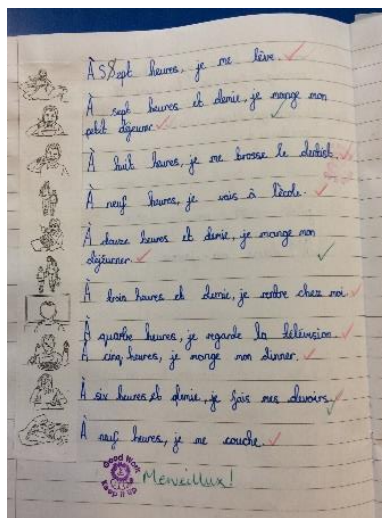 À Sept heures, je me lève.
À sept heures et demie, je mange mon
petit déjeuner.
À huit heures, je me brosse le dentist.
À neuf heures, je vais à l'école.
À douze heures et demie, je mange mon
déjeuner.
À trois heures et demie, je rentre chez moi.
À quatre heures, je regarde la télévision.
À cinq heures, je mange mon dinner.
À six heures et demie, je fais mes devoirs.
À neuf heures, je me couche.
Good Work
Keep it up
Merveillux!